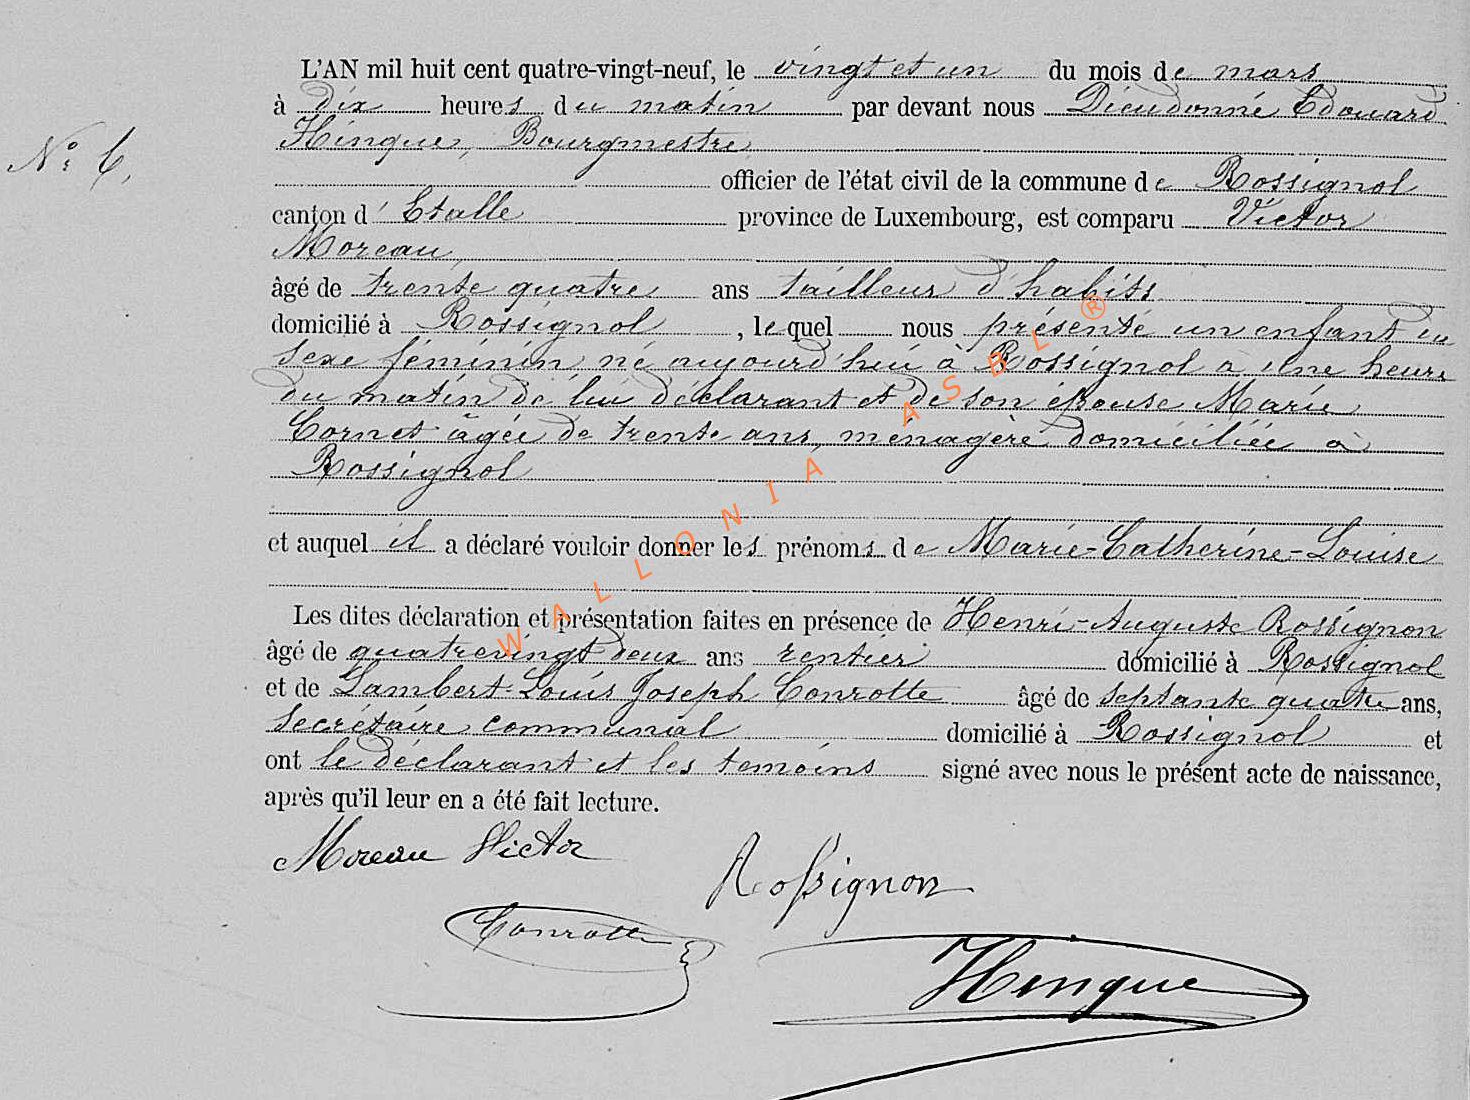 L'AN mil huit cent quatre-vingt-neuf, le vingt et un du mois de mars
à dix heures du matin par devant nous Dieudonné Edouard
Hinque, Bourgmestre
N° 6.
officier de l'état civil de la commune de Rossignol
canton d'Etalle province de Luxembourg, est comparu Victor
Moreau,
âgé de trente quatre ans tailleur d'habits
domicilié à Rossignol, lequel nous présenté un enfant du
sexe féminin, né aujourd'hui à Rossignol a une heure
du matin de lui déclarant et de son épouse Marie
Cornet âgée de trente ans, ménagère domiciliée à
Rossignol
et auquel il a déclaré vouloir donner les prénoms de Marie-Catherine-Louise
Les dites déclaration et présentation faites en présence de Henri-Auguste Rossignon
âgé de quatrevingt deux ans rentier domicilié à Rossignol
et de Lambert-Louis Joseph Conrotte âgé de septante quatre ans,
secrétaire communal domicilié à Rossignol et
ont le déclarant et les temoins signé avec nous le présent acte de naissance,
après qu'il leur en a été fait lecture.
Moreau Victor
Rossignon
Conrotte
Hinque
WALLONIA ASBL ®